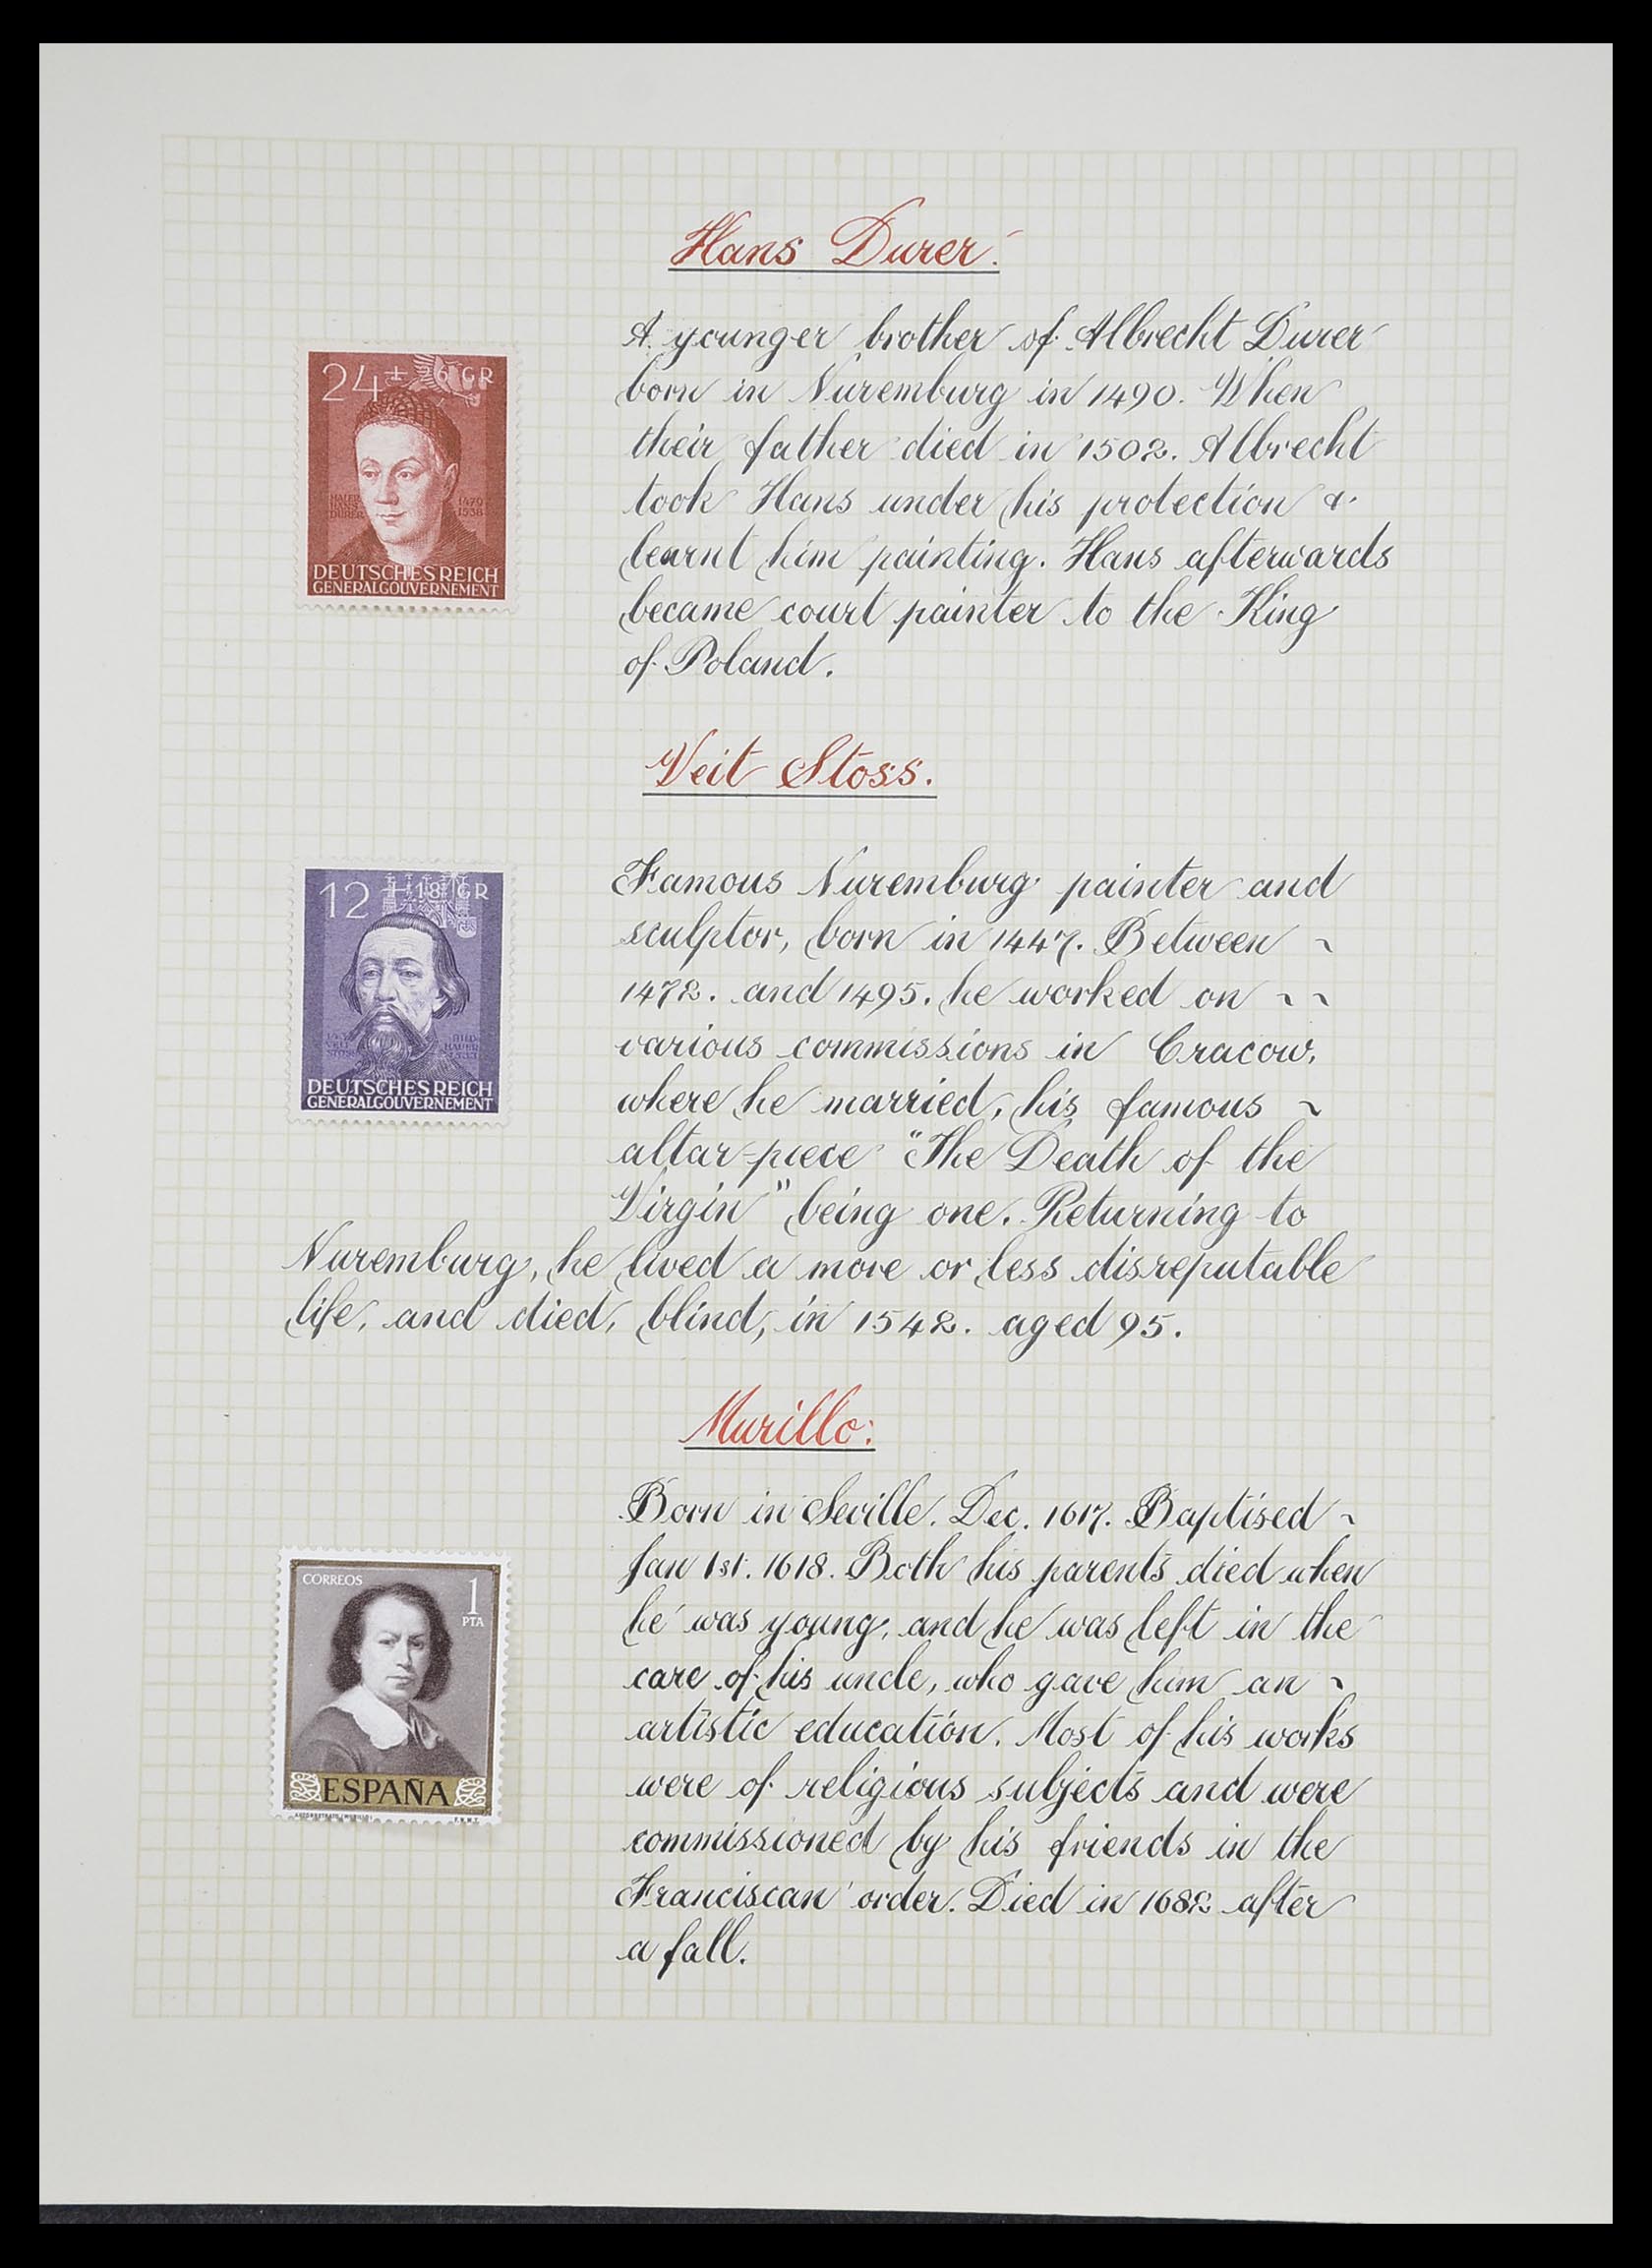 Hans Durer.
A younger brother of Albrecht Durer
born in Nuremburg in 1490. When
their father died in 1502. Albrecht
took Hans under his protection &
learnt him painting. Hans afterwards
became court painter to the King
of Poland.
24 + 26 GR
1470
1538
DEUTSCHES REICH
GENERALGOUVERNEMENT
Veit Stoss.
Famous Nuremburg painter and
sculptor, born in 1447. Between ~
1472. and 1495. he worked on ~ ~
various commissions in Cracow,
where he married, his famous ~
altar-piece "The Death of the
Virgin" being one. Returning to
Nuremburg, he lived a more or less disreputable
life, and died, blind, in 1542. aged 95.
12 + 18 GR
DEUTSCHES REICH
GENERALGOUVERNEMENT
Murillo:
Born in Seville. Dec. 1617. Baptised ~
Jan 1st. 1618. Both his parents died when
he was young, and he was left in the
care of his uncle, who gave him an ~
artistic education. Most of his works
were of religious subjects and were
commissioned by his friends in the
Franciscan order. Died in 1682 after
a fall.
CORREOS
1
PTA
ESPAÑA